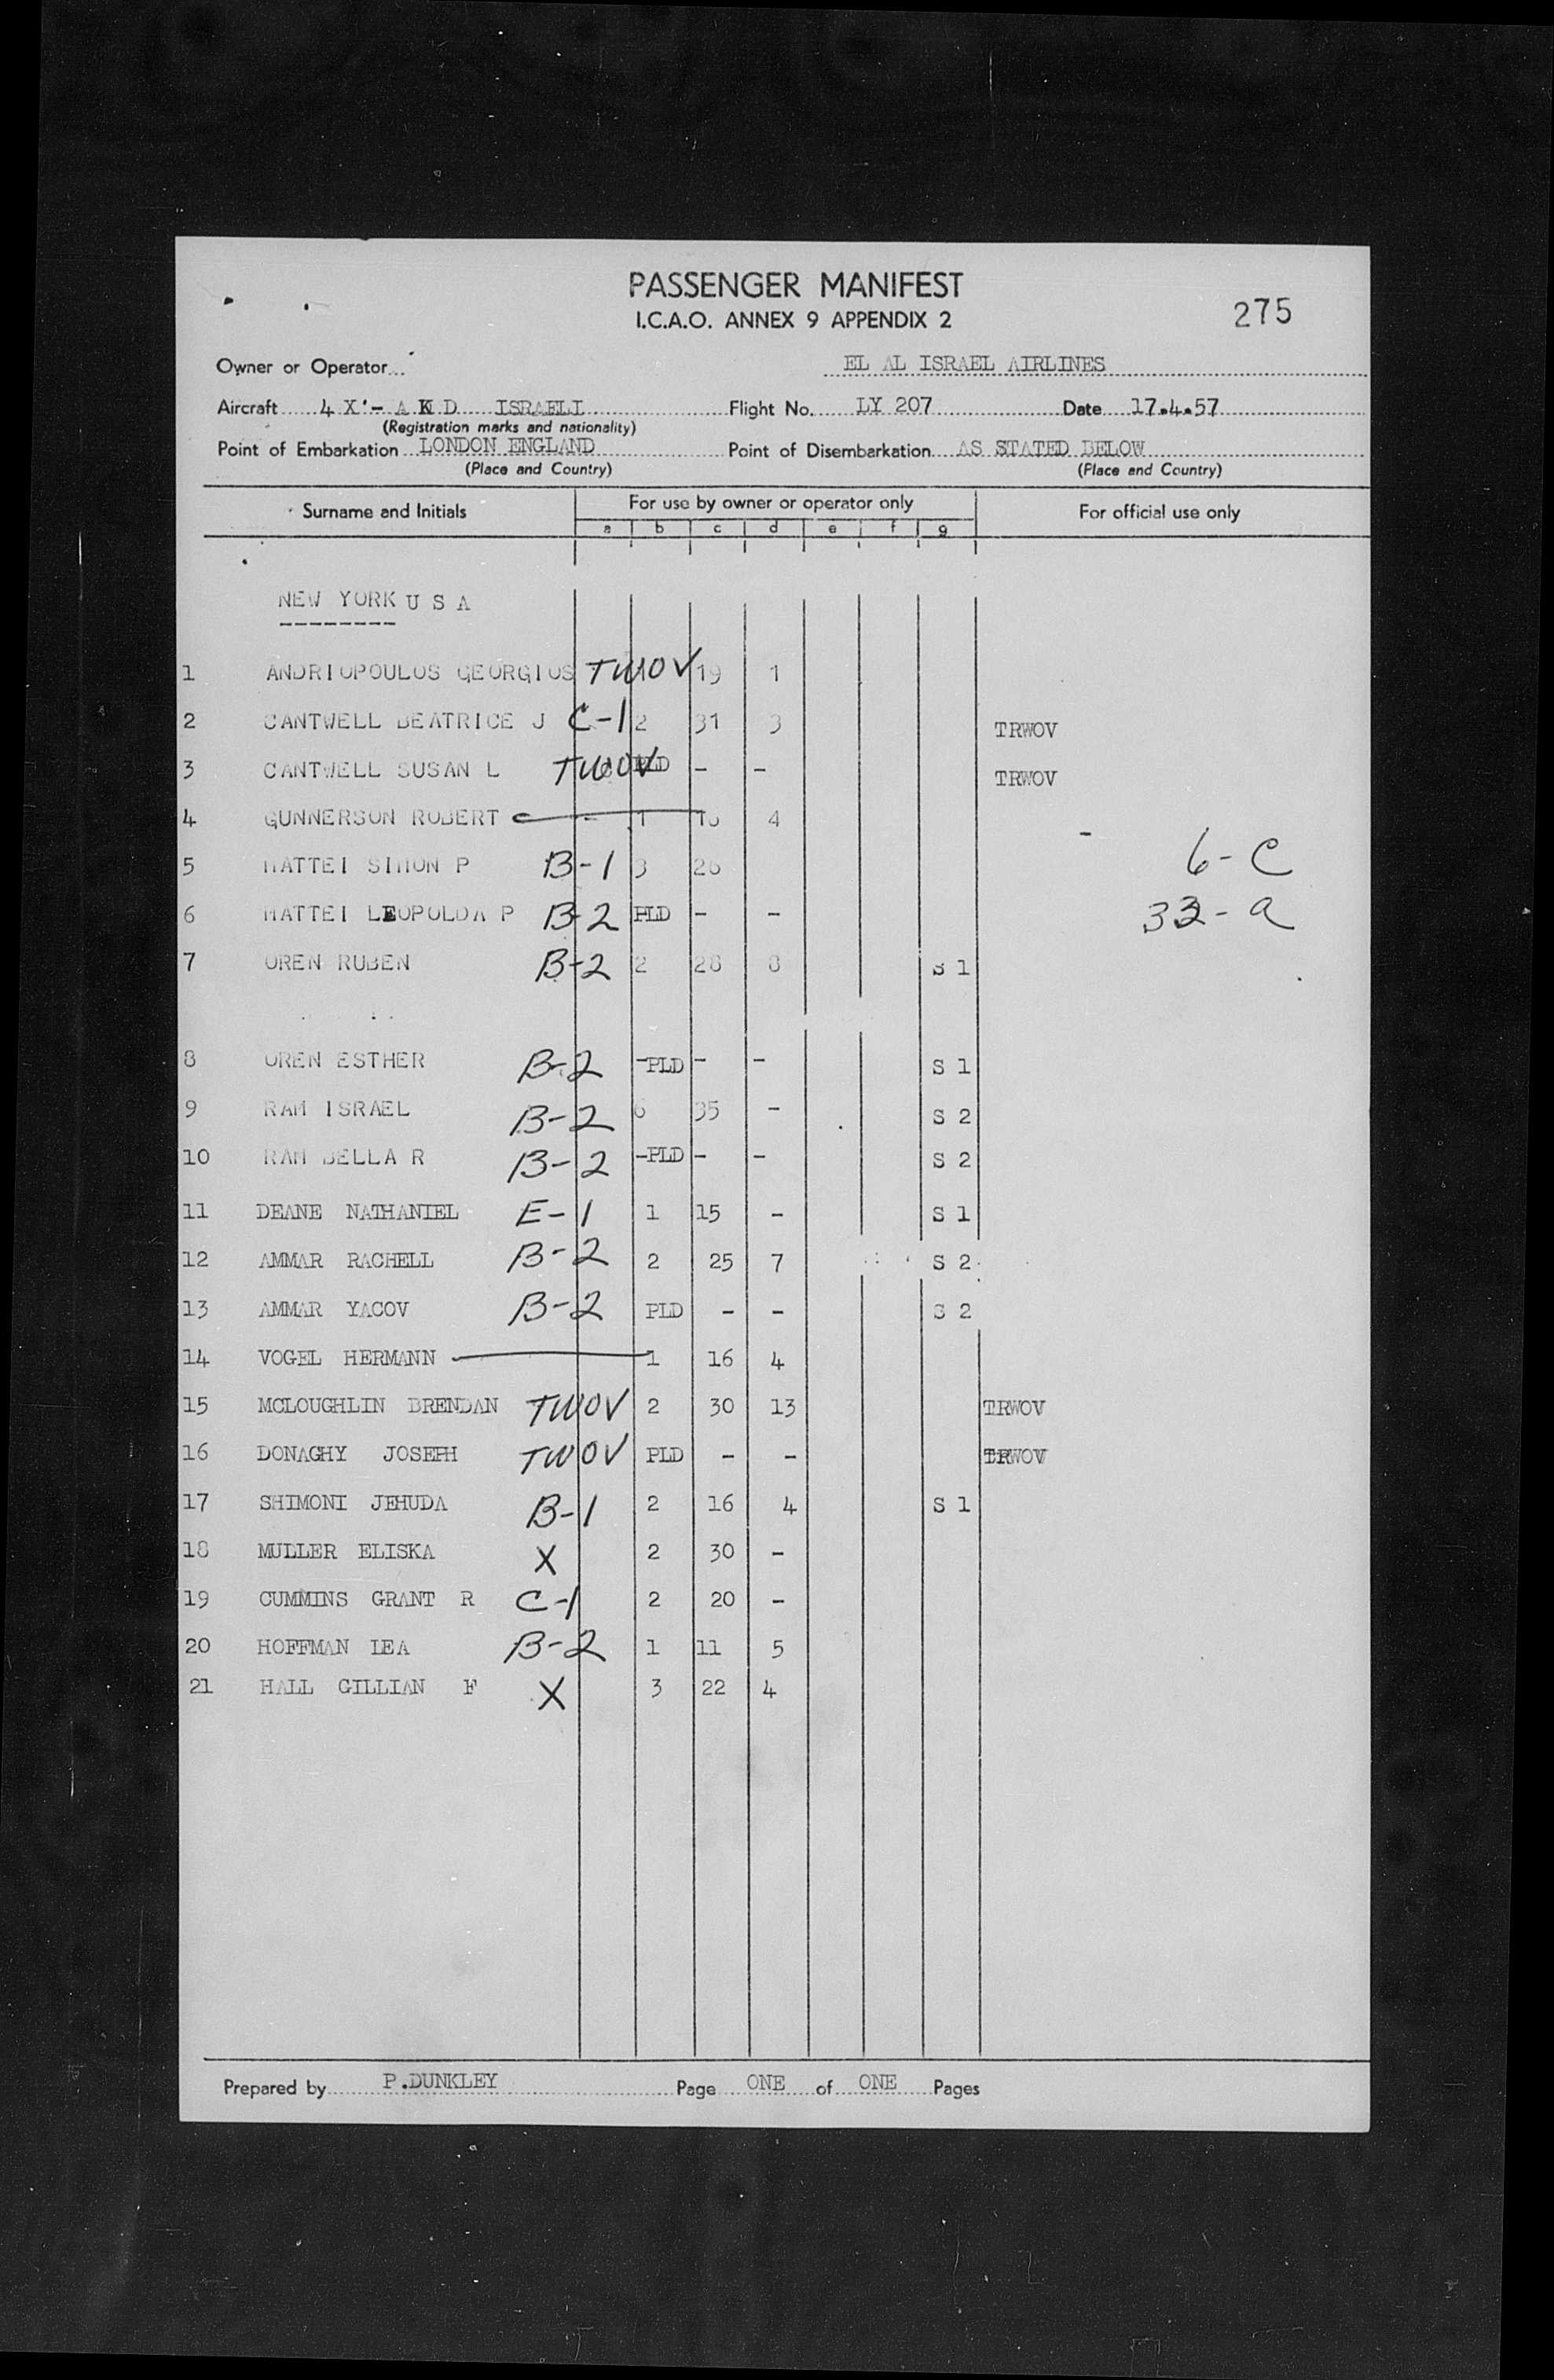 PASSENGER MANIFEST
I.C.A.O. ANNEX 9 APPENDIX 2
275
Owner or Operator EL AL ISRAEL AIRLINES
Aircraft 4 X - A K D ISRAELI Flight No. LY 207 Date 17.4.57
(Registration marks and nationality)
Point of Embarkation LONDON ENGLAND Point of Disembarkation AS STATED BELOW
(Place and Country) (Place and Country)
Surname and Initials For use by owner or operator only For official use only
a b c d e f g
NEW YORK U S A
--------
1 ANDRIOPOULOS GEORGIOS TWOV 19 1
2 CANTWELL BEATRICE J C-1 2 31 3 TRWOV
3 CANTWELL SUSAN L TWOV PLD - - TRWOV
4 GUNNERSON ROBERT 1 4
6-C
5 MATTEI SIMON P B-1 3 26
6 MATTEI LEOPOLDA P B-2 PLD - -
33-a
7 OREN RUBEN B-2 2 28 8 S 1
8 OREN ESTHER B-2 -PLD - - S 1
9 RAM ISRAEL B-2 6 35 - S 2
10 RAM BELLA R B-2 -PLD - - S 2
11 DEANE NATHANIEL E-1 1 15 - S 1
12 AMMAR RACHELL B-2 2 25 7 S 2
13 AMMAR YACOV B-2 PLD - - S 2
14 VOGEL HERMANN 1 16 4
15 MCLOUGHLIN BRENDAN TWOV 2 30 13 TRWOV
16 DONAGHY JOSEPH TWOV PLD - - TRWOV
17 SHIMONI JEHUDA B-1 2 16 4 S 1
18 MULLER ELISKA X 2 30 -
19 CUMMINS GRANT R C-1 2 20 -
20 HOFFMAN LEA B-2 1 11 5
21 HALL GILLIAN F X 3 22 4
Prepared by P.DUNKLEY Page ONE of ONE Pages